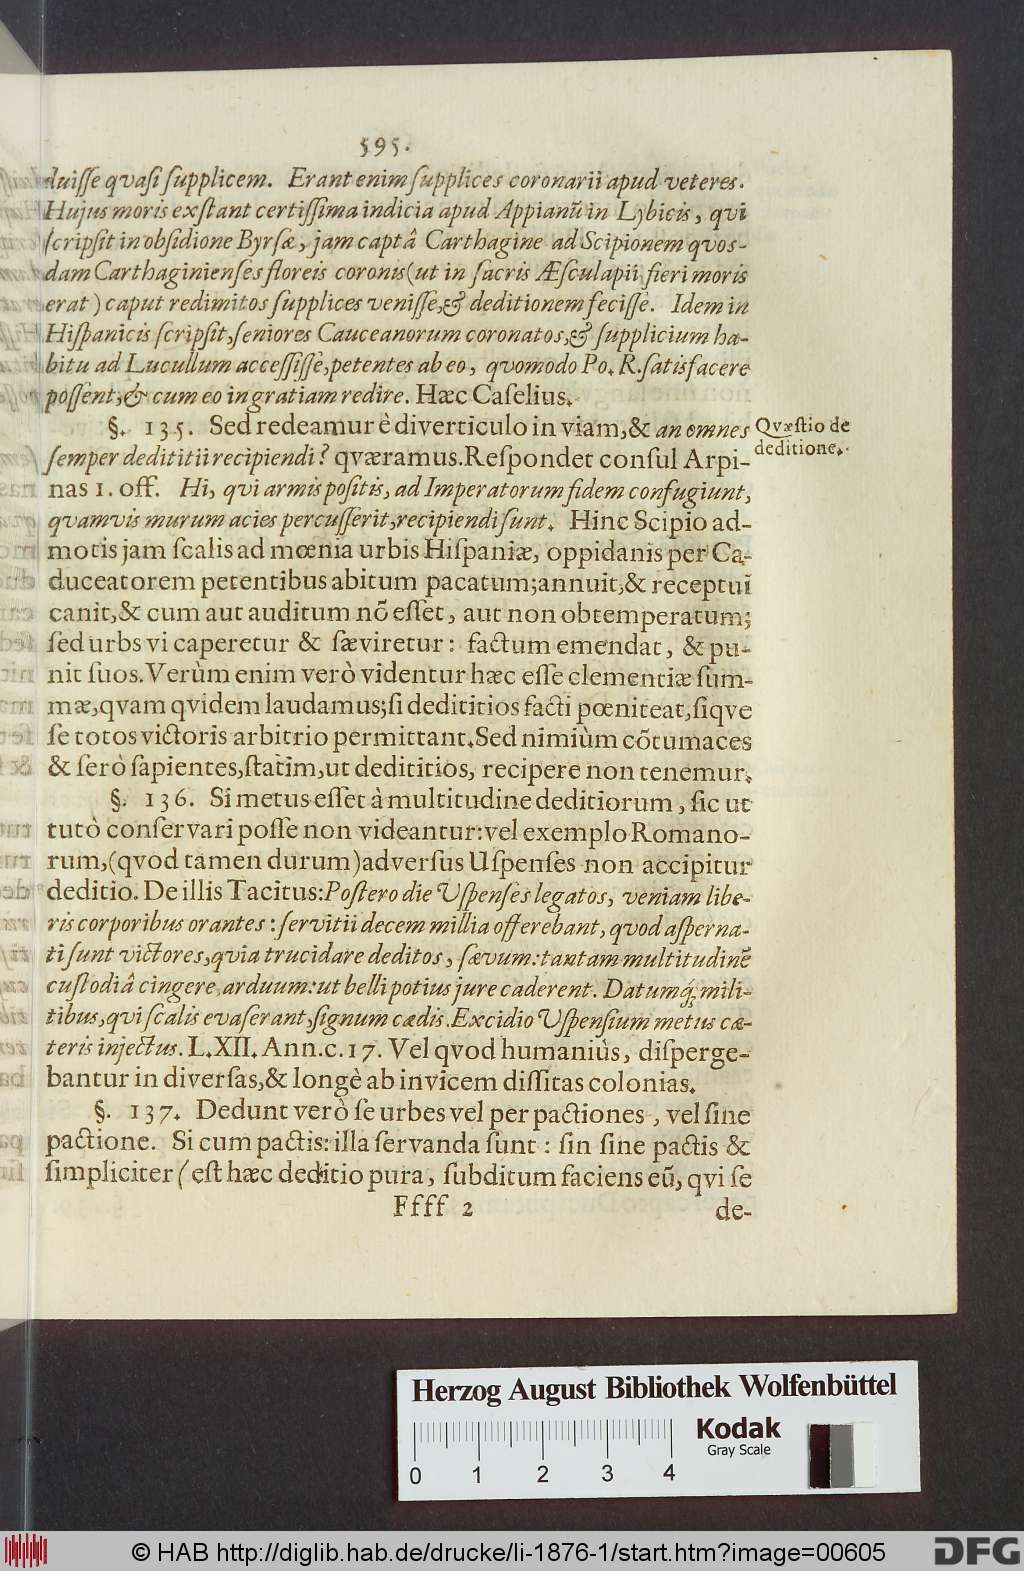 595.
duiſſe qvaſi ſupplicem. Erant enim ſupplices coronarii apud veteres.
Hujus moris exſtant certiſſima indicia apud Appianū in Lybicis, qvi
ſcripſit in obſidione Byrſæ, jam captâ Carthagine ad Scipionem qvos-
dam Carthaginienſes floreis coronis (ut in ſacris Æſculapii fieri moris
erat) caput redimitos ſupplices veniſſe, & deditionem feciſſe. Idem in
Hiſpanicis ſcripſit, ſeniores Cauceanorum coronatos, & ſupplicium ha-
bitu ad Lucullum acceſſiſſe, petentes ab eo, qvomodo Po. R. ſatisfacere
poſſent, & cum eo in gratiam redire. Hæc Caſelius.
§. 135. Sed redeamur è diverticulo in viam, & an omnes
ſemper dedititii recipiendi? qværamus. Reſpondet conſul Arpi-
nas 1. off. Hi, qvi armis poſitis, ad Imperatorum fidem confugiunt,
qvamvis murum acies percuſſerit, recipiendi ſunt. Hinc Scipio ad-
motis jam ſcalis ad mœnia urbis Hiſpaniæ, oppidanis per Ca-
duceatorem petentibus abitum pacatum; annuit, & receptuī
canit, & cum aut auditum nō eſſet, aut non obtemperatum;
ſed urbs vi caperetur & ſæviretur: factum emendat, & pu-
nit ſuos. Verùm enim verò videntur hæc eſſe clementiæ ſum-
mæ, qvam qvidem laudamus; ſi dedititios facti pœniteat, ſiqve
ſe totos victoris arbitrio permittant. Sed nimiùm cōtumaces
& ſerò ſapientes, ſtatim, ut dedititios, recipere non tenemur.
§. 136. Si metus eſſet à multitudine deditiorum, ſic ut
tutò conſervari poſſe non videantur: vel exemplo Romano-
rum, (qvod tamen durum) adverſus Uſpenſes non accipitur
deditio. De illis Tacitus: Poſtero die Uſpenſes legatos, veniam libe-
ris corporibus orantes: ſervitii decem millia offerebant, qvod aſperna-
ti ſunt victores, qvia trucidare deditos, ſævum: tantam multitudinē
cuſtodiâ cingere, arduum: ut belli potius jure caderent. Datumq́; mili-
tibus, qvi ſcalis evaſerant, ſignum cædis. Excidio Uſpenſium metus cæ-
teris injectus. L. XII. Ann. c. 17. Vel qvod humaniùs, diſperge-
bantur in diverſas, & longè ab invicem diſſitas colonias.
§. 137. Dedunt verò ſe urbes vel per pactiones, vel ſine
pactione. Si cum pactis: illa ſervanda ſunt: ſin ſine pactis &
ſimpliciter (eſt hæc deditio pura, ſubditum faciens eū, qvi ſe
Ffff 2
de-
Qvæſtio de
deditione.
Herzog August Bibliothek Wolfenbüttel
0 1 2 3 4
Kodak
Gray Scale
© HAB http://diglib.hab.de/drucke/li-1876-1/start.htm?image=00605
DFG